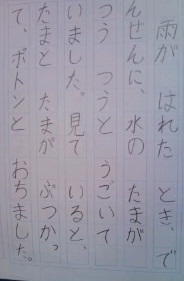 雨が はれた とき、で
んせんに、水の たまが
つう つうと うごいて
いました。見て いると、
たまと たまが ぶつかっ
て、ポトンと おちました。